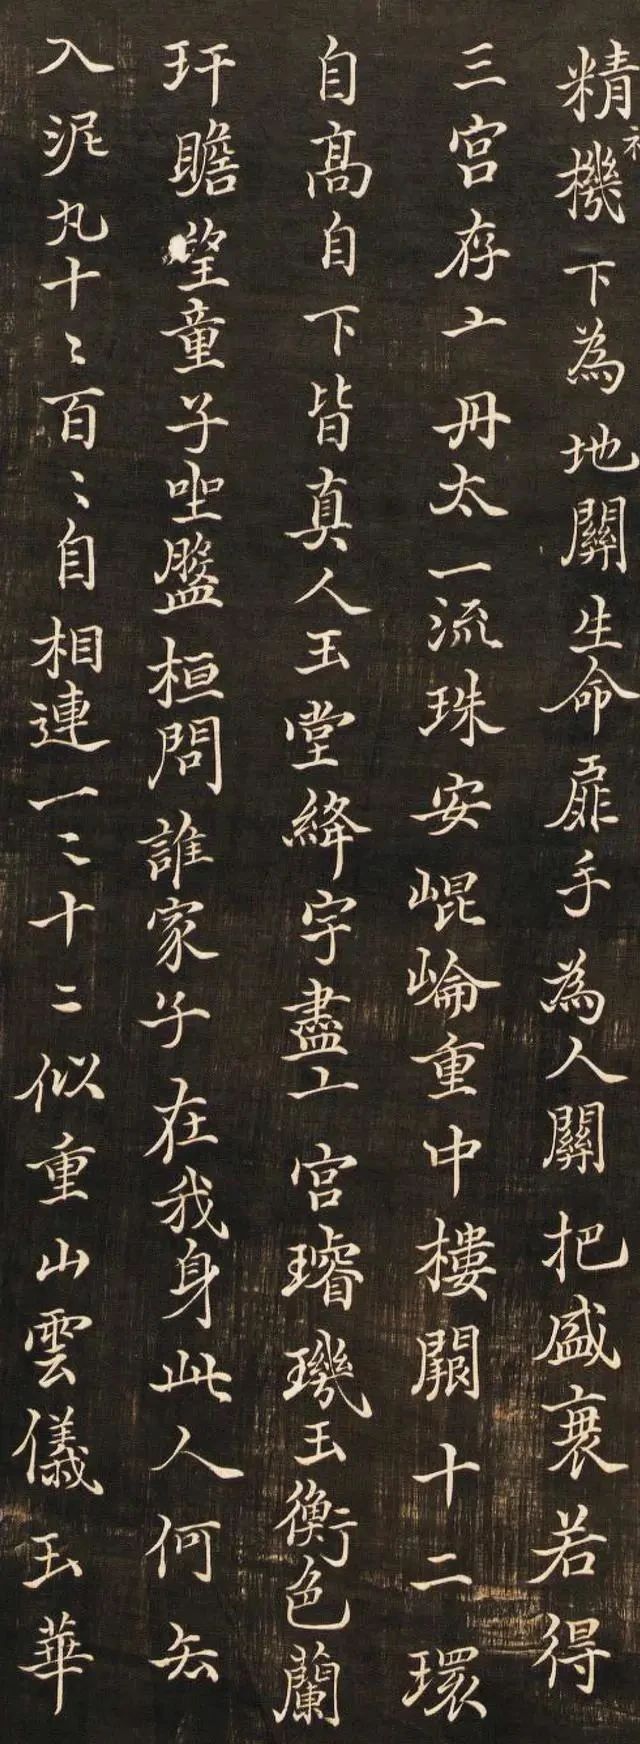 精機下為地關生命扉手為人關把盛衰若得
不
三宮存亠丹太一流珠安崐崘重中樓閣十二環
自髙自下皆真人玉堂絳宇盡亠宮璿璣玉衡色蘭
玕瞻望童子坐盤桓問誰家子在我身此人何去
入泥丸十〻百〻自相連一〻十二似重山雲儀玉華